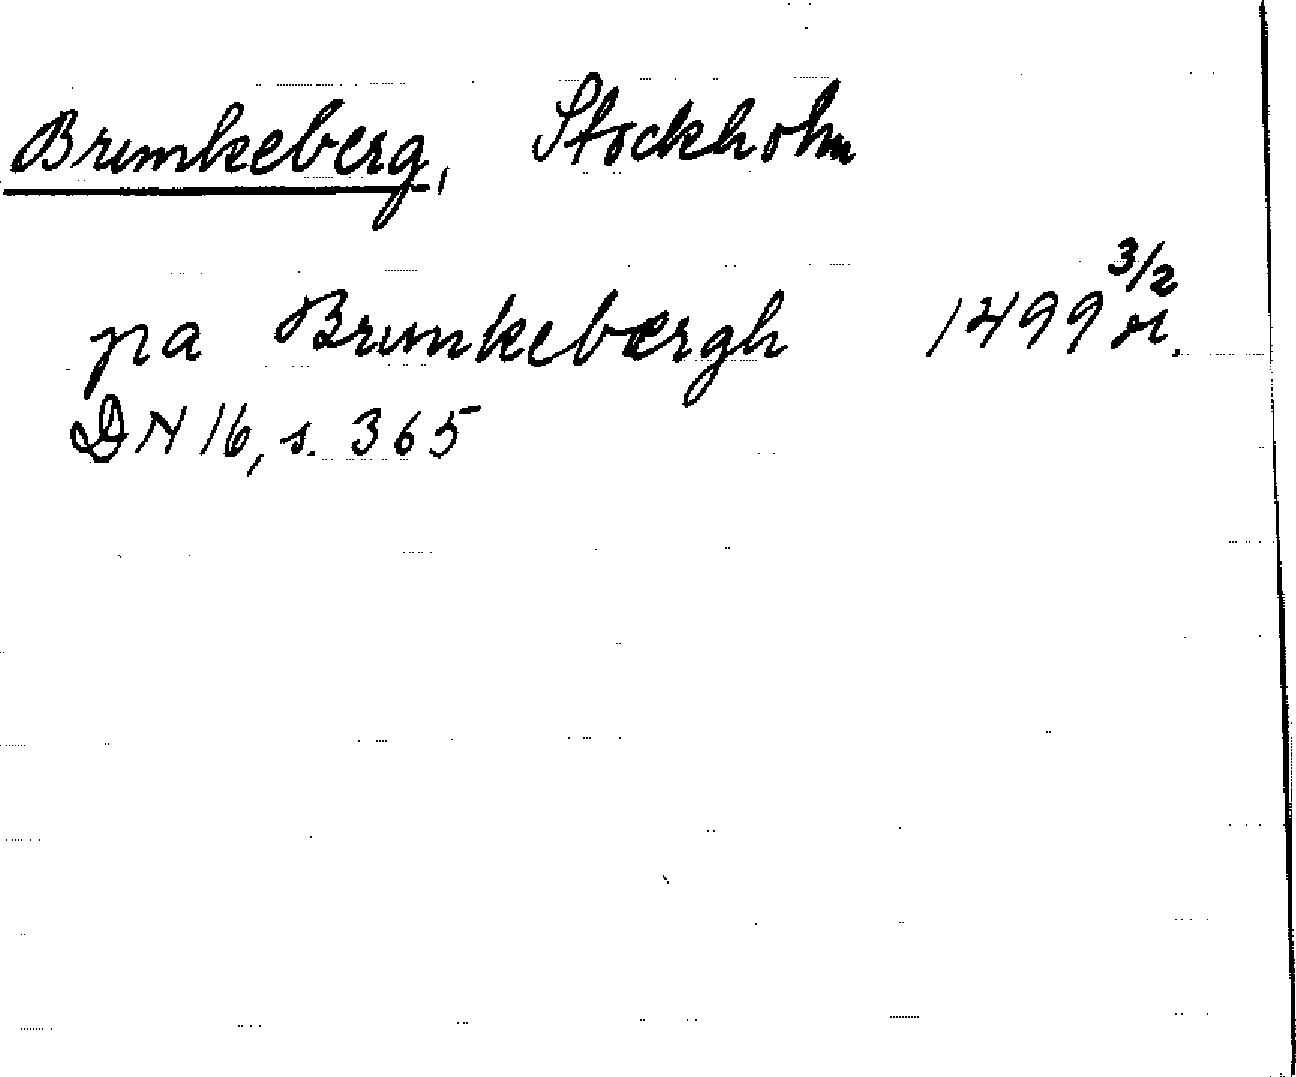 Brunkeberg, Stockholm
pa Brunkebærgh 1499 3/2 or.
DN 16, s. 365